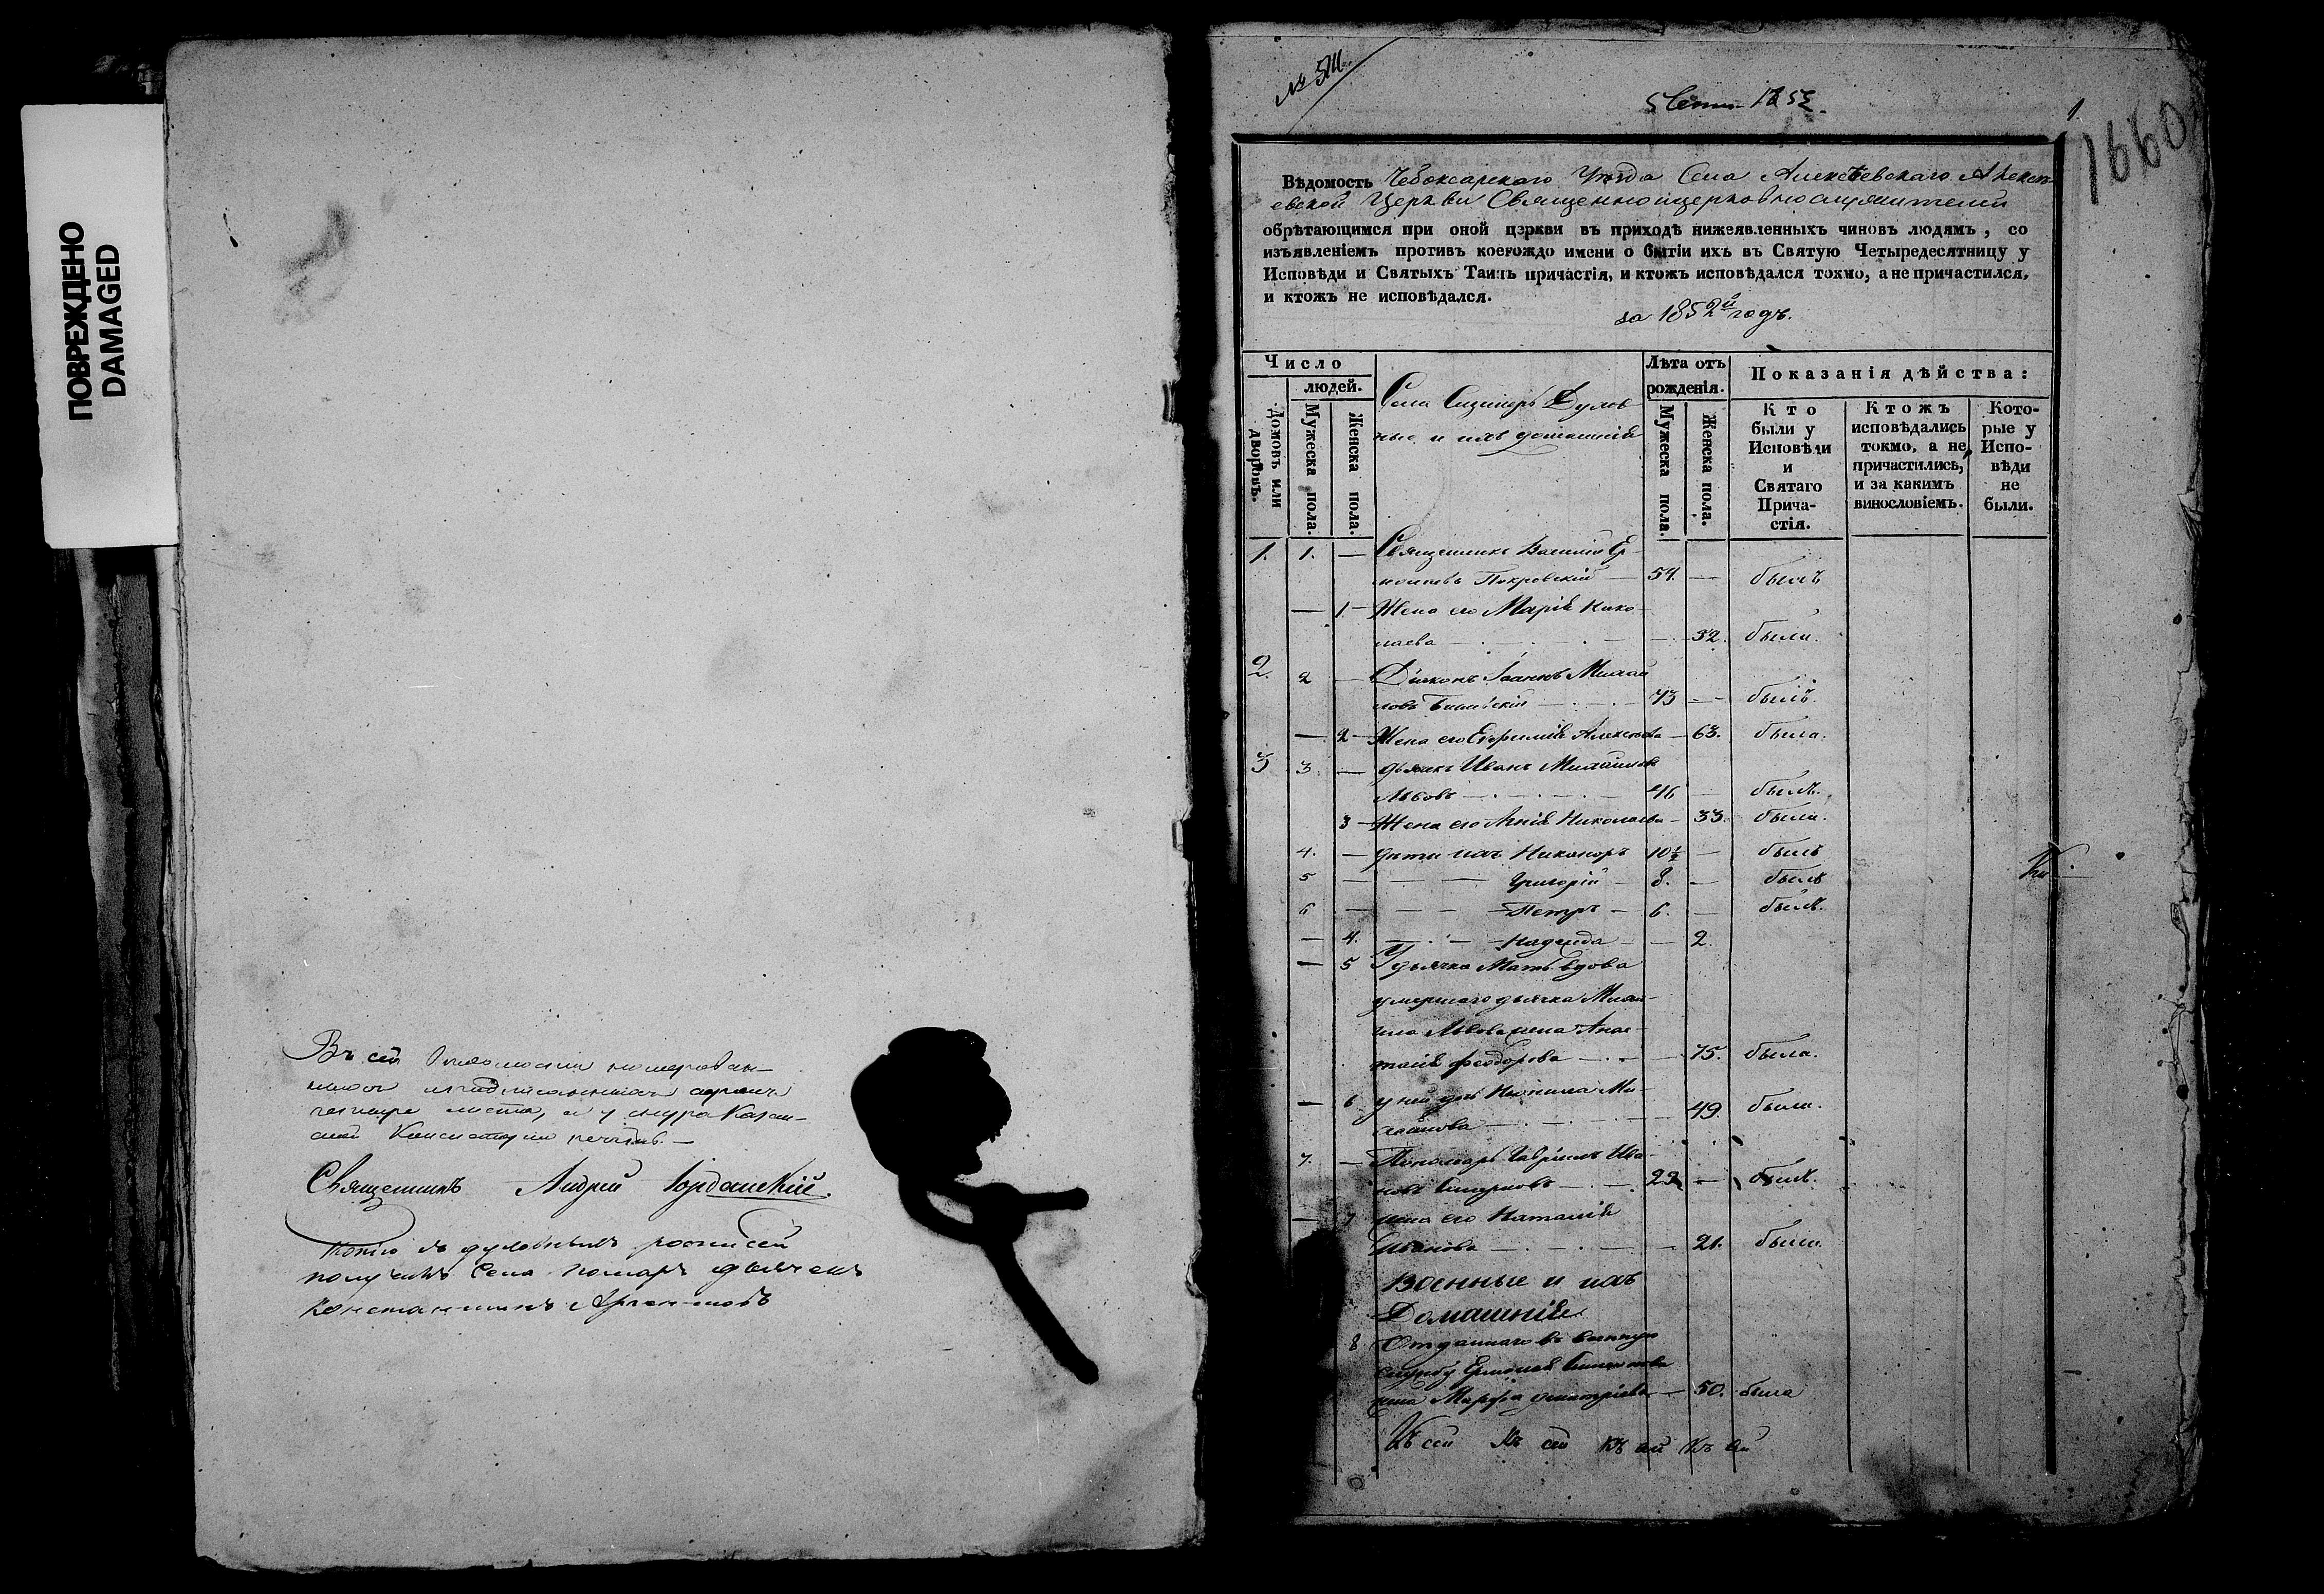 ПОВРЕЖДЕНО
DAMAGED
Въ сей номерован-
листа, и у шнура Казан-
ской Консисторіи печать.
Священникъ Андрей Іорданскій.
Копію съ духовныхъ росписей
получилъ Села дьячекъ
Константинъ
№
1
1660
Вѣдомость Чебоксарскаго Уѣзда Села Алексѣевскаго Алексѣ-
евской Церкви Священноицерковнослужителей
обрѣтающимся при оной цэркви въ приходѣ нижеявленныхъ чиновъ людямъ, со
изъявленіемъ противъ коегождо имени о бытіи ихъ въ Святую Четыредесятницу у
Исповѣди и Святыхъ Таинъ причастія, и ктожъ исповѣдался токмо, а не причастился,
и ктожъ не исповѣдался.
за 1852й годъ.
Число
людей.
Домовъ или
дворовъ.
Мужеска пола.
Женска пола.
Села Духов-
ные и ихъ домашніе
Лѣта отъ
рожденія.
Мужеска пола.
Женска пола.
Показанія дѣйства:
Кто
были у
Исповѣди
и
Святаго
Прича-
стія.
Ктожъ
исповѣдались
токмо, а не
причастились,
и за какимъ
винословіемъ.
Кото-
рые у
Испо-
вѣди
не
были.
1. 1. — Священникъ Василій Ер-
Покровскій — 54. — былъ
— 1 — Жена его Марія Нико-
лаева — — 52. была.
2. 2 — Діаконъ Іоаннъ Михай
ловъ — 73 — былъ.
— 2 — Жена его Евфимія Алексѣева — 63. была.
3 3. — дьячекъ Иванъ Михайловъ
Львовъ — 46 — былъ.
3 — Жена его Николаева — 33. была.
4. — дѣти ихъ Никаноръ 10½ — былъ
5 — — Григорій — 8. — былъ
6 — — Петръ — 6. — былъ.
— 4. — — Надежда — — 2.
— 5 У дьячка Мать вдова
умершаго дьячка Михаи-
ла Львова жена Анас-
тасія Феодорова — 75. была.
— 6 у ней дочь Ми-
хайлова — — 49. была.
7. — Пономарь Гавріилъ Ива-
новъ Смирновъ — 22 — былъ.
— 7 жена его Наталія
Иванова — — 21. была.
Военные и ихъ
Домашніе.
8 Отданнаго въ военную
службу
жена Марфа Дмитріева — 50. была
Къ сей Къ сей Къ сей Къ сей